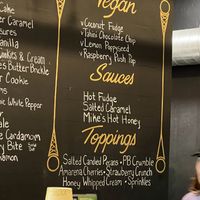 Cake
Caramel
anilla
& Cream
Butter Brickle
Cookie
White Pepper
Cardamom
Bite
Vegan
Coconut Fudge
Tahini Chocolate Chip
Lemon Poppyseed
Raspberry Rush Pop
Sauces
Hot Fudge
Salted Caramel
Mike's Hot Honey
Toppings
Salted Candied Pecans • PB Crumble
Amarena Cherries • Strawberry Crunch
Honey Whipped Cream • Sprinkles